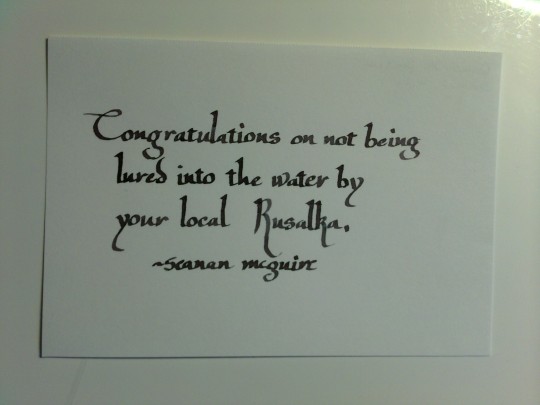 Congratulations on not being
lured into the water by
your local Rusalka.
~seanan mcguire